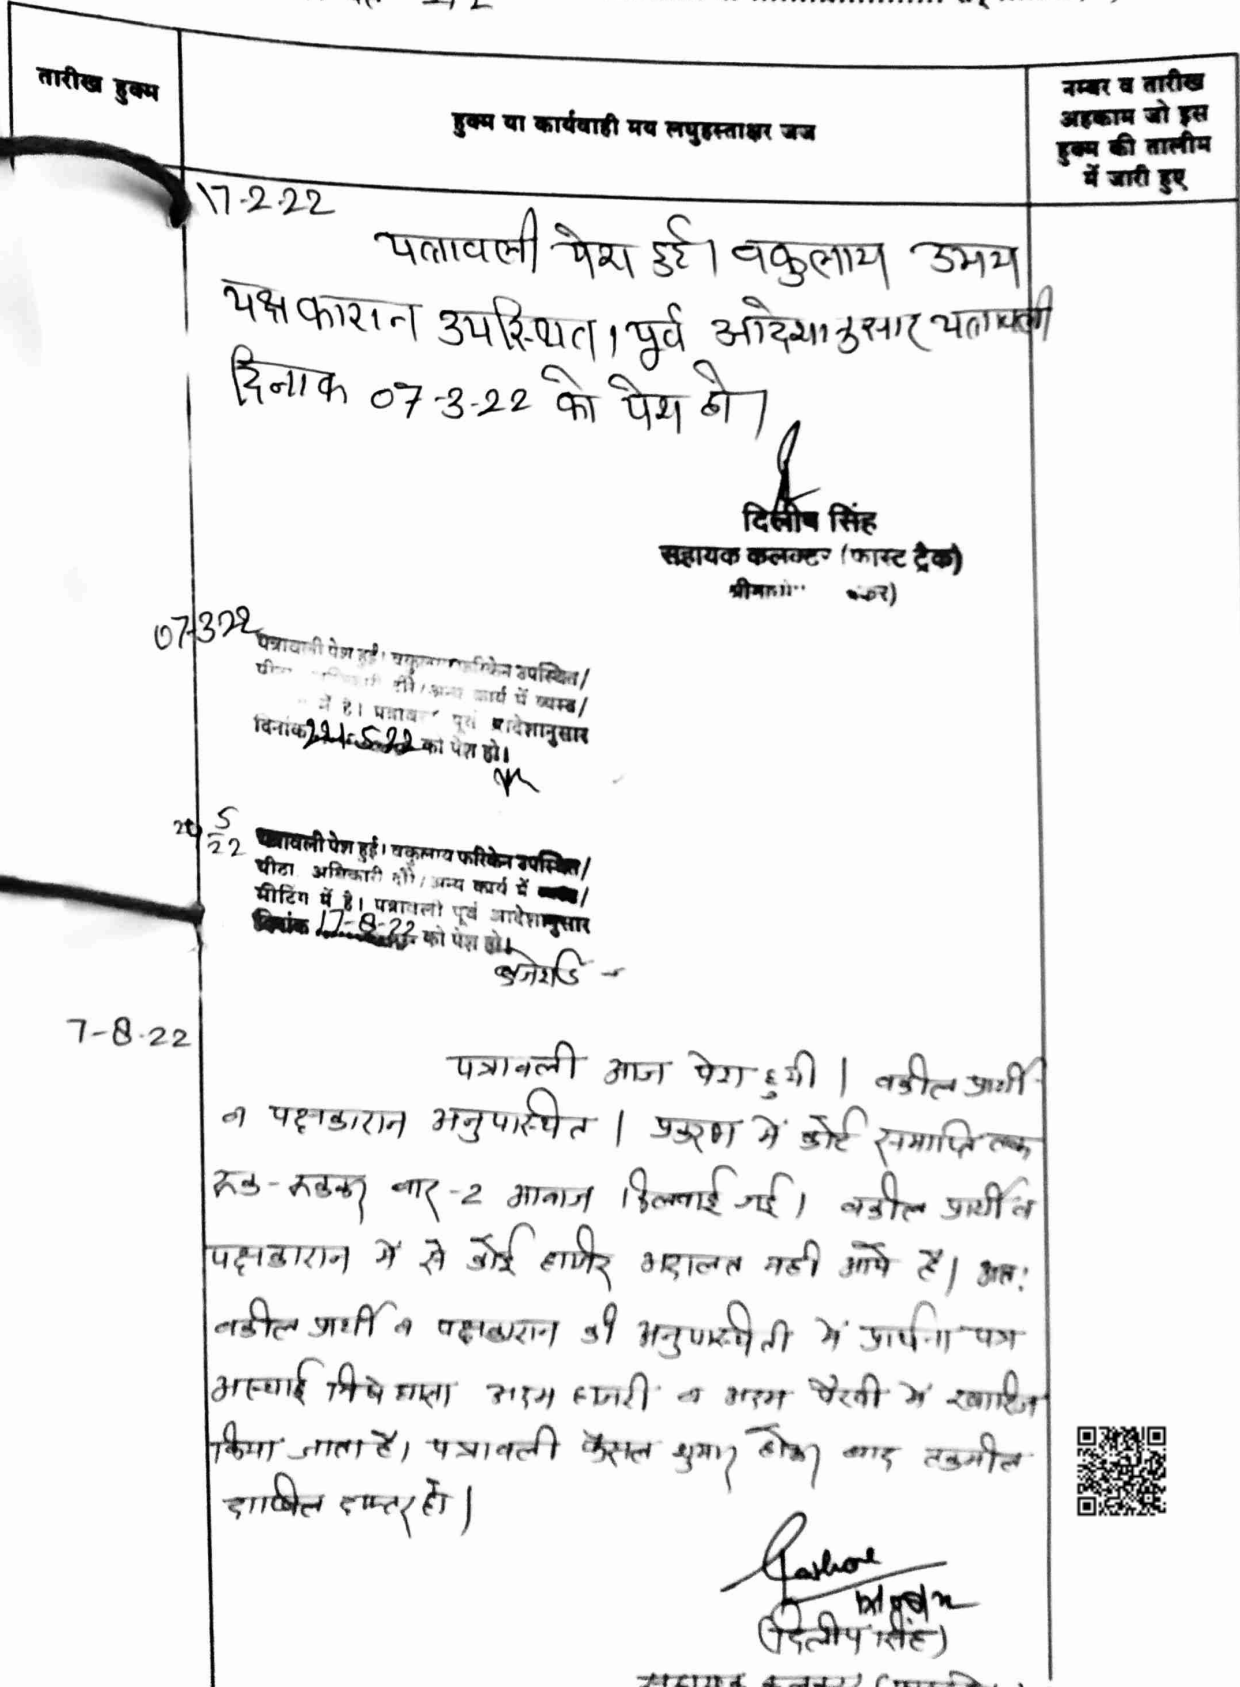 तारीख हुक्म
हुक्म या कार्यवाही मय लघुहस्ताक्षर जज
नम्बर व तारीख
अहकाम जो इस
हुक्म की तालीम
में जारी हुए
17-2-22
पत्रावली पेश हुई। वकुलाय उभय
पक्षकारान उपस्थित। पूर्व आदेशानुसार पत्रावली
दिनांक 07-3-22 को पेश हो।
दिलीप सिंह
सहायक कलक्टर (फास्ट ट्रैक)
07-3-22
पत्रावली पेश हुई। वकुलाय फरिकेन उपस्थित/
दौरे/अन्य कार्य में व्यस्त/
में है। पत्रावली पूर्व आदेशानुसार
दिनांक को पेश हो।
5
22
पत्रावली पेश हुई। वकुलाय फरिकेन उपस्थित/
पीठा. अधिकारी दौरे/अन्य कार्य में व्यस्त/
मीटिंग में है। पत्रावली पूर्व आदेशानुसार
दिनांक 17-8-22 को पेश हो।
7-8-22
पत्रावली आज पेश हुयी। वकील प्रार्थी
व पक्षकारान अनुपस्थित। प्रकरण में कोर्ट समाप्ति तक
रूक-रूककर बार-2 आवाज दिलवाई गई। वकील प्रार्थी व
पक्षकारान में से कोई हाजिर अदालत नही आये है। अतः
वकील प्रार्थी व पक्षकारान की अनुपस्थिती में प्रार्थना पत्र
अस्थाई निषेधाज्ञा अदम हाजरी व अदम पैरवी में खारिज
किया जाता है। पत्रावली फैसल शुमार होकर बाद तकमील
दाखिल दफ्तर हो।
(दिलीप सिंह)
सहायक कलक्टर